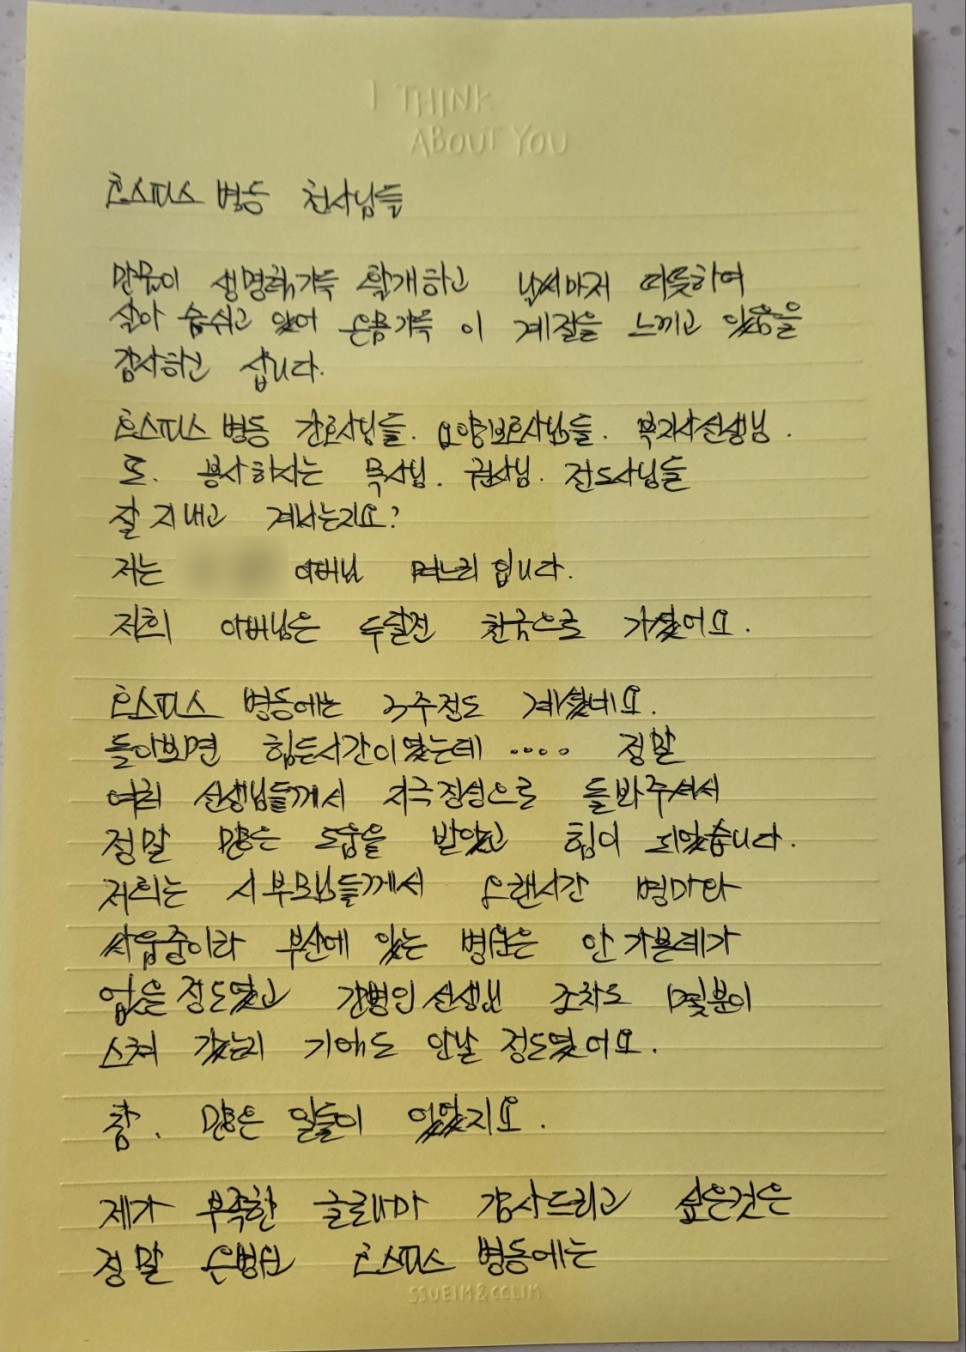 I THINK
ABOUT YOU
호스피스 병동 천사님들
만물이 생명력 가득 활개하고 날씨마저 따뜻하여
살아 숨쉬고 있어 온몸 가득 이 계절을 느끼고 있음을
감사하고 삽니다.
호스피스 병동 간호사님들. 요양보호사님들. 복지사선생님.
또. 봉사하시는 목사님. 권사님. 전도사님들
잘 지내고 계시는지요?
저는 아버님 며느리입니다.
저희 아버님은 두달전 천국으로 가셨어요.
호스피스 병동에는 3주정도 계셨네요.
돌아보면 힘든시간이였는데 .... 정말
여러 선생님들께서 지극정성으로 돌봐주셔서
정말 많은 도움을 받았고 힘이 되었습니다.
저희는 시부모님들께서 오랜시간 병마와
싸움중이라 부산에 있는 병원은 안 가본데가
없을 정도였고 간병인 선생님 조차도 몇분이
스쳐 갔는지 기억도 안날 정도였어요.
참. 많은 일들이 있었지요.
제가 부족한 글로나마 감사드리고 싶은것은
정말 병원 호스피스 병동에는
SSUEIM&CCLIM